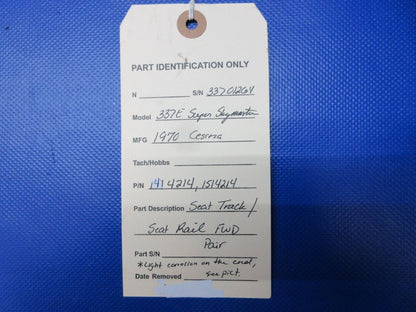 PART IDENTIFICATION ONLY
N S/N 33701264
Model 337E Super Skymaster
MFG 1970 Cessna
Tach/Hobbs
P/N 1414214, 1514214
Part Description Seat Track /
Seat Rail FWD
Pair
Part S/N
*Light corrosion on the end,
Date Removed see pict.